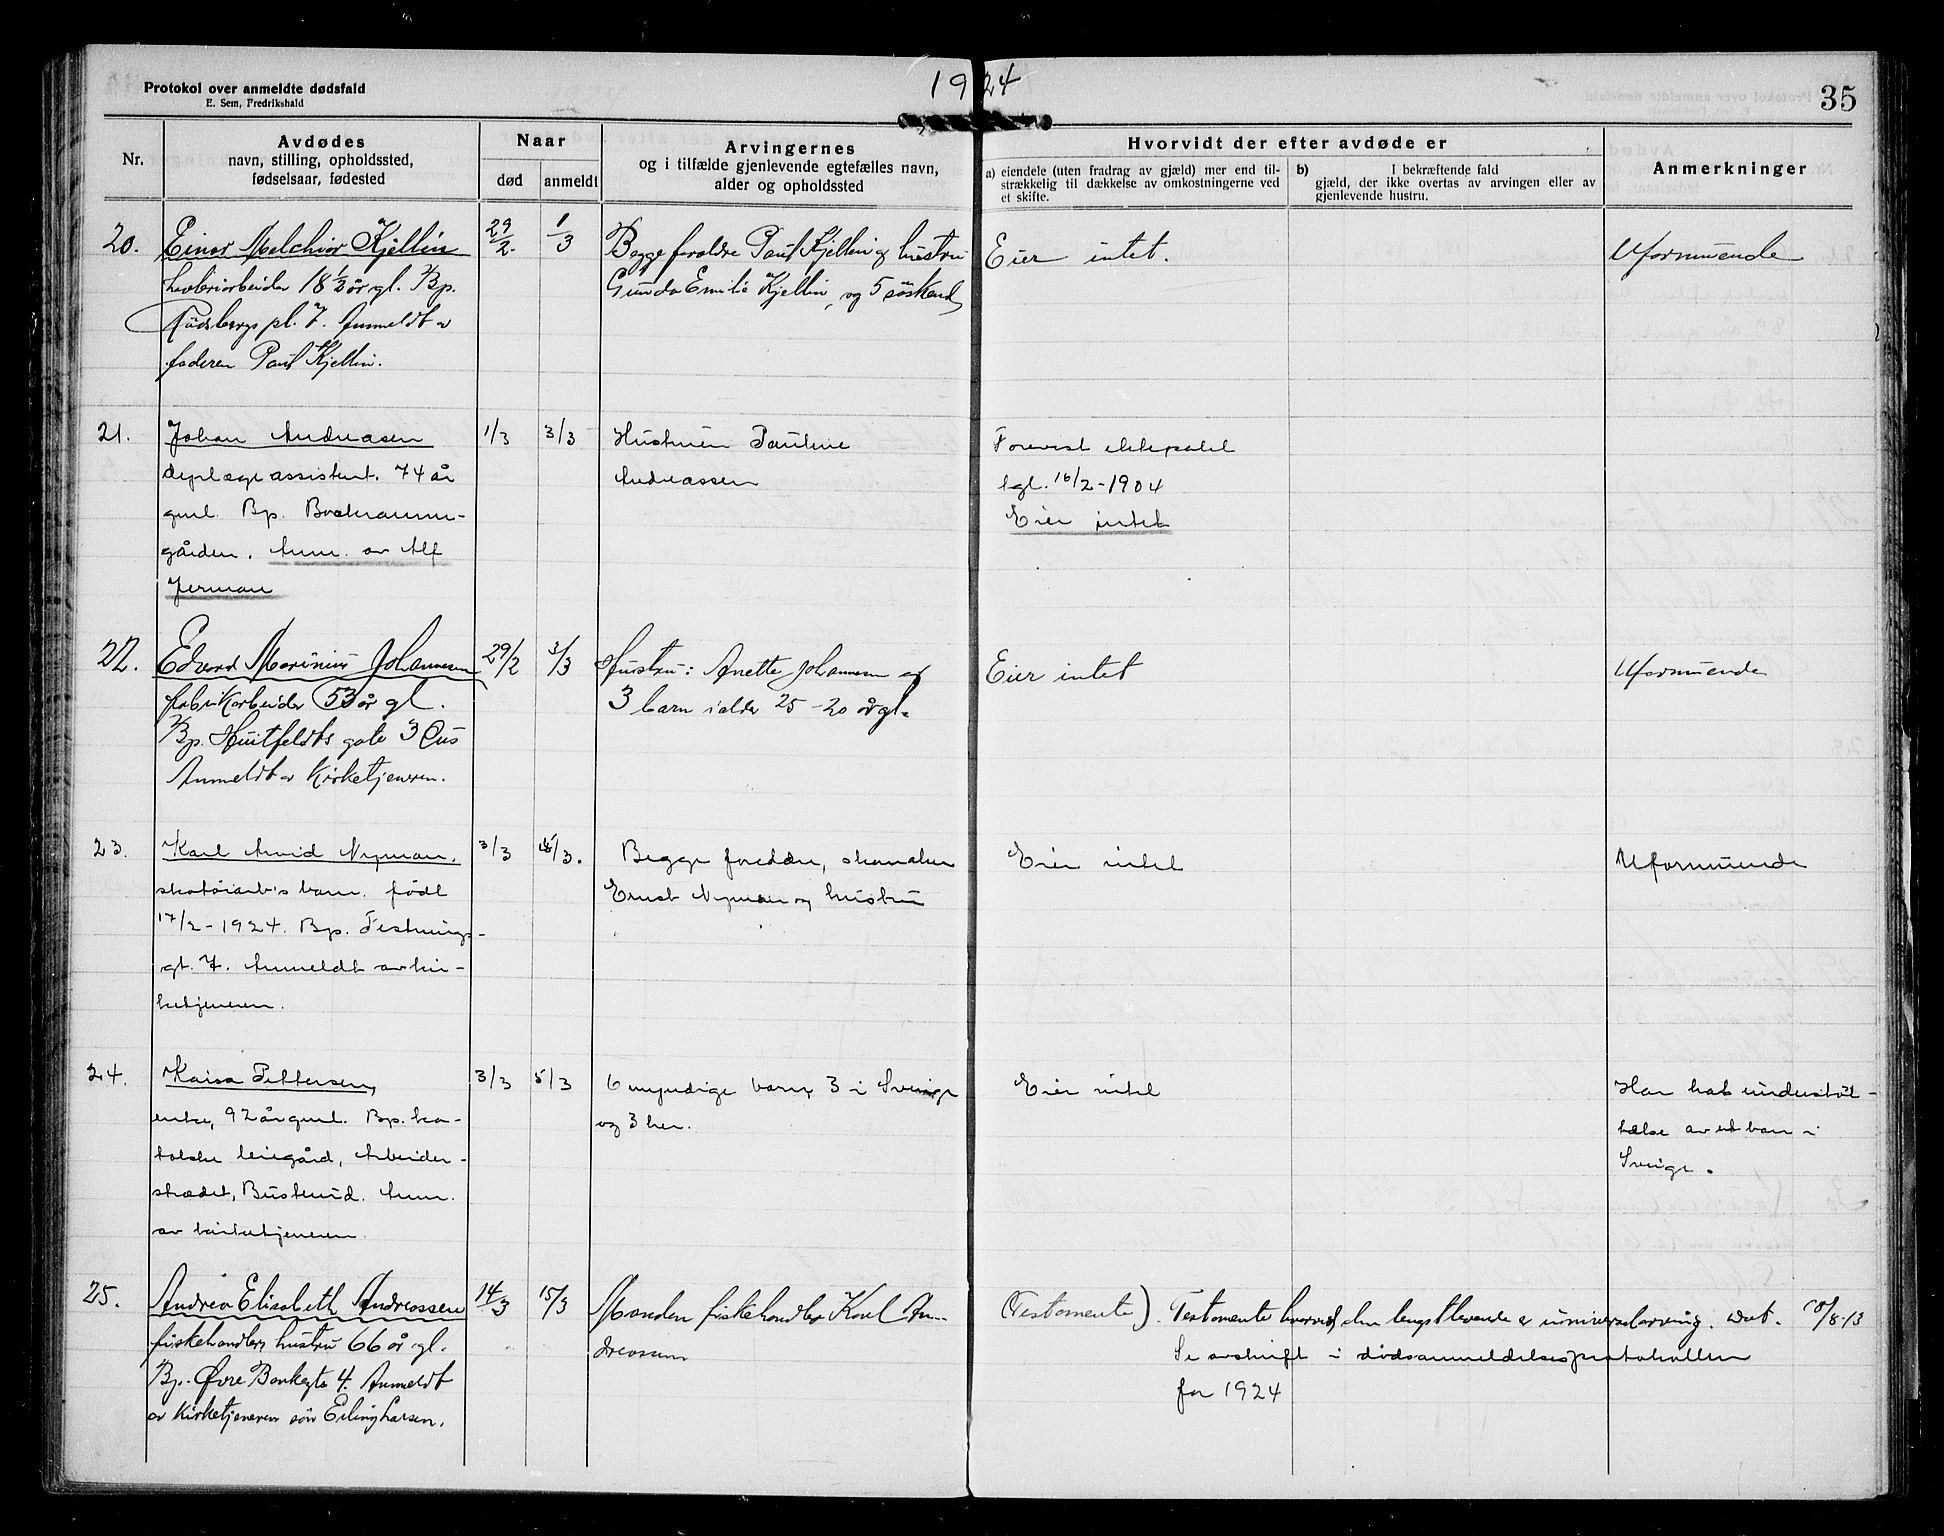 Protokol over anmeldte dødsfald
E. Sem, Fredrikshald
1924
35
Nr.
Avdødes
navn, stilling, opholdssted,
fødselsaar, fødested
Naar
død
anmeldt
Arvingernes
og i tilfælde gjenlevende egtefælles navn,
alder og opholdssted
Hvorvidt der efter avdøde er
a) eiendele (uten fradrag av gjæld) mer end til-
strækkelig til dækkelse av omkostningerne ved
et skifte.
b) I bekræftende fald
gjæld, der ikke overtas av arvingen eller av
gjenlevende hustru.
Anmerkninger
20.
Einar Melchior Kjellin
18 1/2 år gl. Bp.
Rødsbergs pl. 7. Anmeldt av
faderen Paul Kjellin.
29/2.
1/3
Begge foreldre Paul Kjellin og hustru
Gunda Emilie Kjellin, og 5 søskend
Eier intet.
Uformuende
21.
Johan Andreasen
assistent. 74 år
gml. Bp.
gården. Anm. av Alf
Jerman
1/3
3/3
Hustruen Pauline
Andreassen
Forevist ektepakt
tgl. 16/2-1904
Eier intet
22.
Edvard Marinius Johannesen
fabrikarbeider 53 år gl.
Bp. Huitfeldts gate 3
Anmeldt av Kirketjeneren.
29/2
3/3
Hustru: Anette Johannesen og
3 barn i alder 25-20 år gl.
Eier intet
Uformuende
23.
Karl Arvid Nyman,
skotøiarb's barn. født
17/2-1924. Bp. Festnings-
gt. 7. Anmeldt av kir-
ketjeneren.
3/3
/3.
Begge foreldre, skomaker
Ernst Nyman og hustru
Eier intet
Uformuende
24.
Kaisa Pettersen,
enke, 92 år gml. Bp. ka-
tolske leiegård, Arbeider-
strædet, Buskerud. Anm.
av kirketjeneren.
3/3
5/3
6 myndige barn, 3 i Sverige
og 3 her.
Eier intet
Har hat understøt-
telse av et barn i
Sverige.
25.
Andrea Elisabeth Andreassen
fiskehandlers hustru 66 år gl.
Bp. Øvre Bankegt. 4. Anmeldt
av Kirketjeneren søn Erling Larsen.
14/3
15/3
Manden fiskehandler Karl An-
dreassen
(Testamente). Testamente hvorved den lengstlevende er universalarving. Dat. 18/8-13
Se avskrift i dødsanmeldelsesprotokollen
for 1924